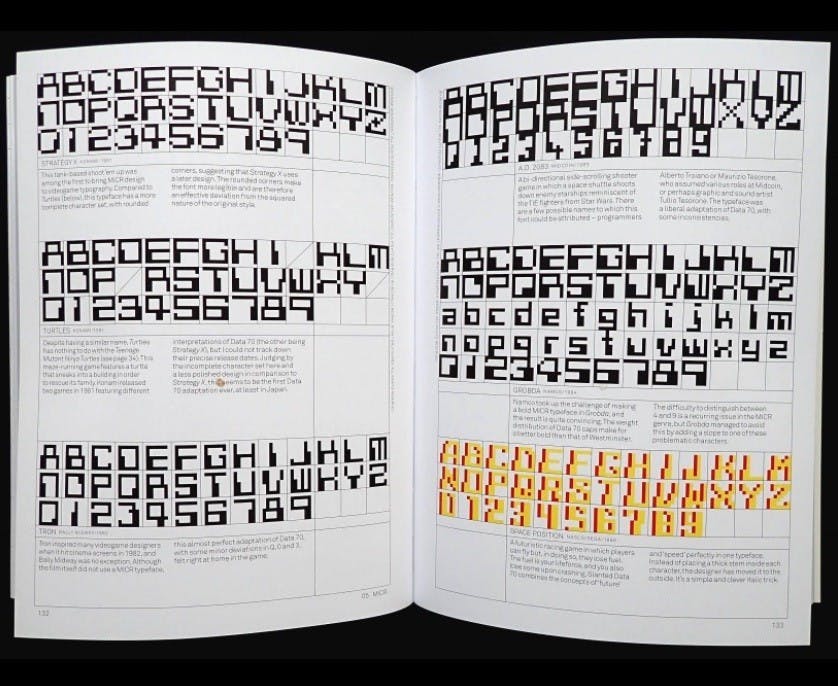 ABCDEFGHIJKLM
NOPQRSTUVWXYZ
0123456789
STRATEGY X KONAMI/1981
This tank-based shoot 'em up was
among the first to bring MICR design
to videogame typography. Compared to
Turtles (below), this typeface has a more
complete character set, with rounded
corners, suggesting that Strategy X uses
a later design. The rounded corners make
the font more legible and are therefore
an effective deviation from the squared
nature of the original style.
ABCDEFGHI KLM
NOP RSTUVWXY
0123456789
TURTLES KONAMI/1981
Despite having a similar name, Turtles
has nothing to do with the Teenage
Mutant Ninja Turtles (see page 34). This
maze-running game features a turtle
that sneaks into a building in order
to rescue its family. Konami released
two games in 1981 featuring different
interpretations of Data 70 (the other being
Strategy X), but I could not track down
their precise release dates. Judging by
the incomplete character set here and
a less polished design in comparison to
Strategy X, this seems to be the first Data
70 adaptation ever, at least in Japan.
ABCDEFGHIJKLM
NOPQRSTUVWXYZ
0123456789
TRON BALLY MIDWAY/1982
Tron inspired many videogame designers
when it hit cinema screens in 1982, and
Bally Midway was no exception. Although
the film itself did not use a MICR typeface,
this almost perfect adaptation of Data 70,
with some minor deviations in Q, 0 and 3,
felt right at home in the game.
05 MICR
132
ABCDEFGHIJKLM
NOPQRSTUVWXYZ
0123456789
A.D. 2083 MIDCOIN/1983
A bi-directional side-scrolling shooter
game in which a space shuttle shoots
down enemy starships reminiscent of
the TIE fighters from Star Wars. There
are a few possible names to which this
font could be attributed – programmers
Alberto Troiano or Maurizio Tesorone,
who assumed various roles at Midcoin,
or perhaps graphic and sound artist
Tullio Tesorone. The typeface was
a liberal adaptation of Data 70, with
some inconsistencies.
ABCDEFGHIJKLM
NOPQRSTUVWXYZ
abcdefghijklm
nopqrstuvwxyz
0123456789
GROBDA NAMCO/1984
Namco took up the challenge of making
a bold MICR typeface in Grobda, and
the result is quite convincing. The weight
distribution of Data 70 caps make for
a better bold than that of Westminster.
The difficulty to distinguish between
4 and 9 is a recurring issue in the MICR
genre, but Grobda managed to avoid
this by adding a slope to one of these
problematic characters.
ABCDEFGHIJKLM
NOPQRSTUVWXYZ
0123456789
SPACE POSITION
A futuristic racing game in which players
can fly but, in doing so, they lose fuel.
The fuel is your lifeforce, and you also
lose some upon crashing. Slanted Data
70 combines the concepts of 'future'
and 'speed' perfectly in one typeface.
Instead of placing a thick stem inside each
character, the designer has moved it to the
outside. It's a simple and clever italic trick.
133